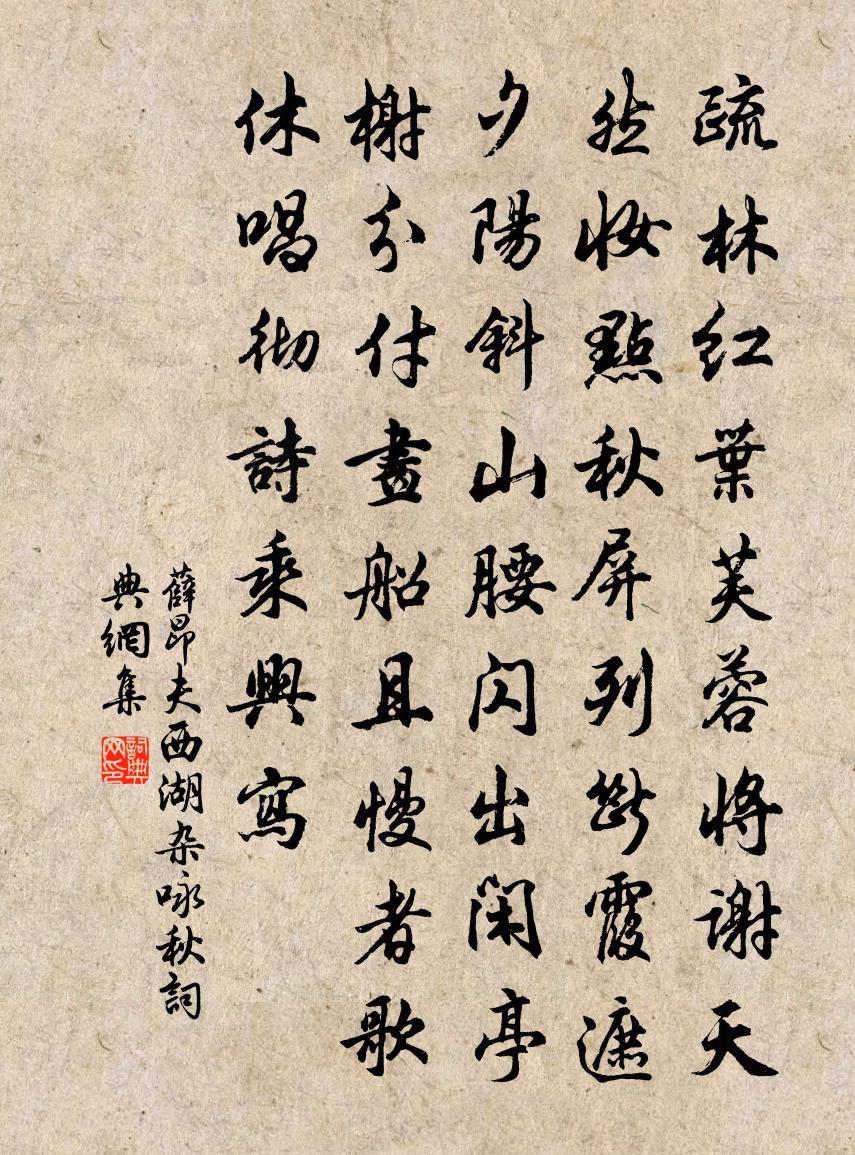 疏林紅葉芙蓉將謝天
然妝點秋屏列斷霞遮
夕陽斜山腰閃出閑亭
榭分付畫船且慢者歌
休唱彻詩乘興寫
薛昂夫西湖杂咏秋詞
典網集
詞典網印